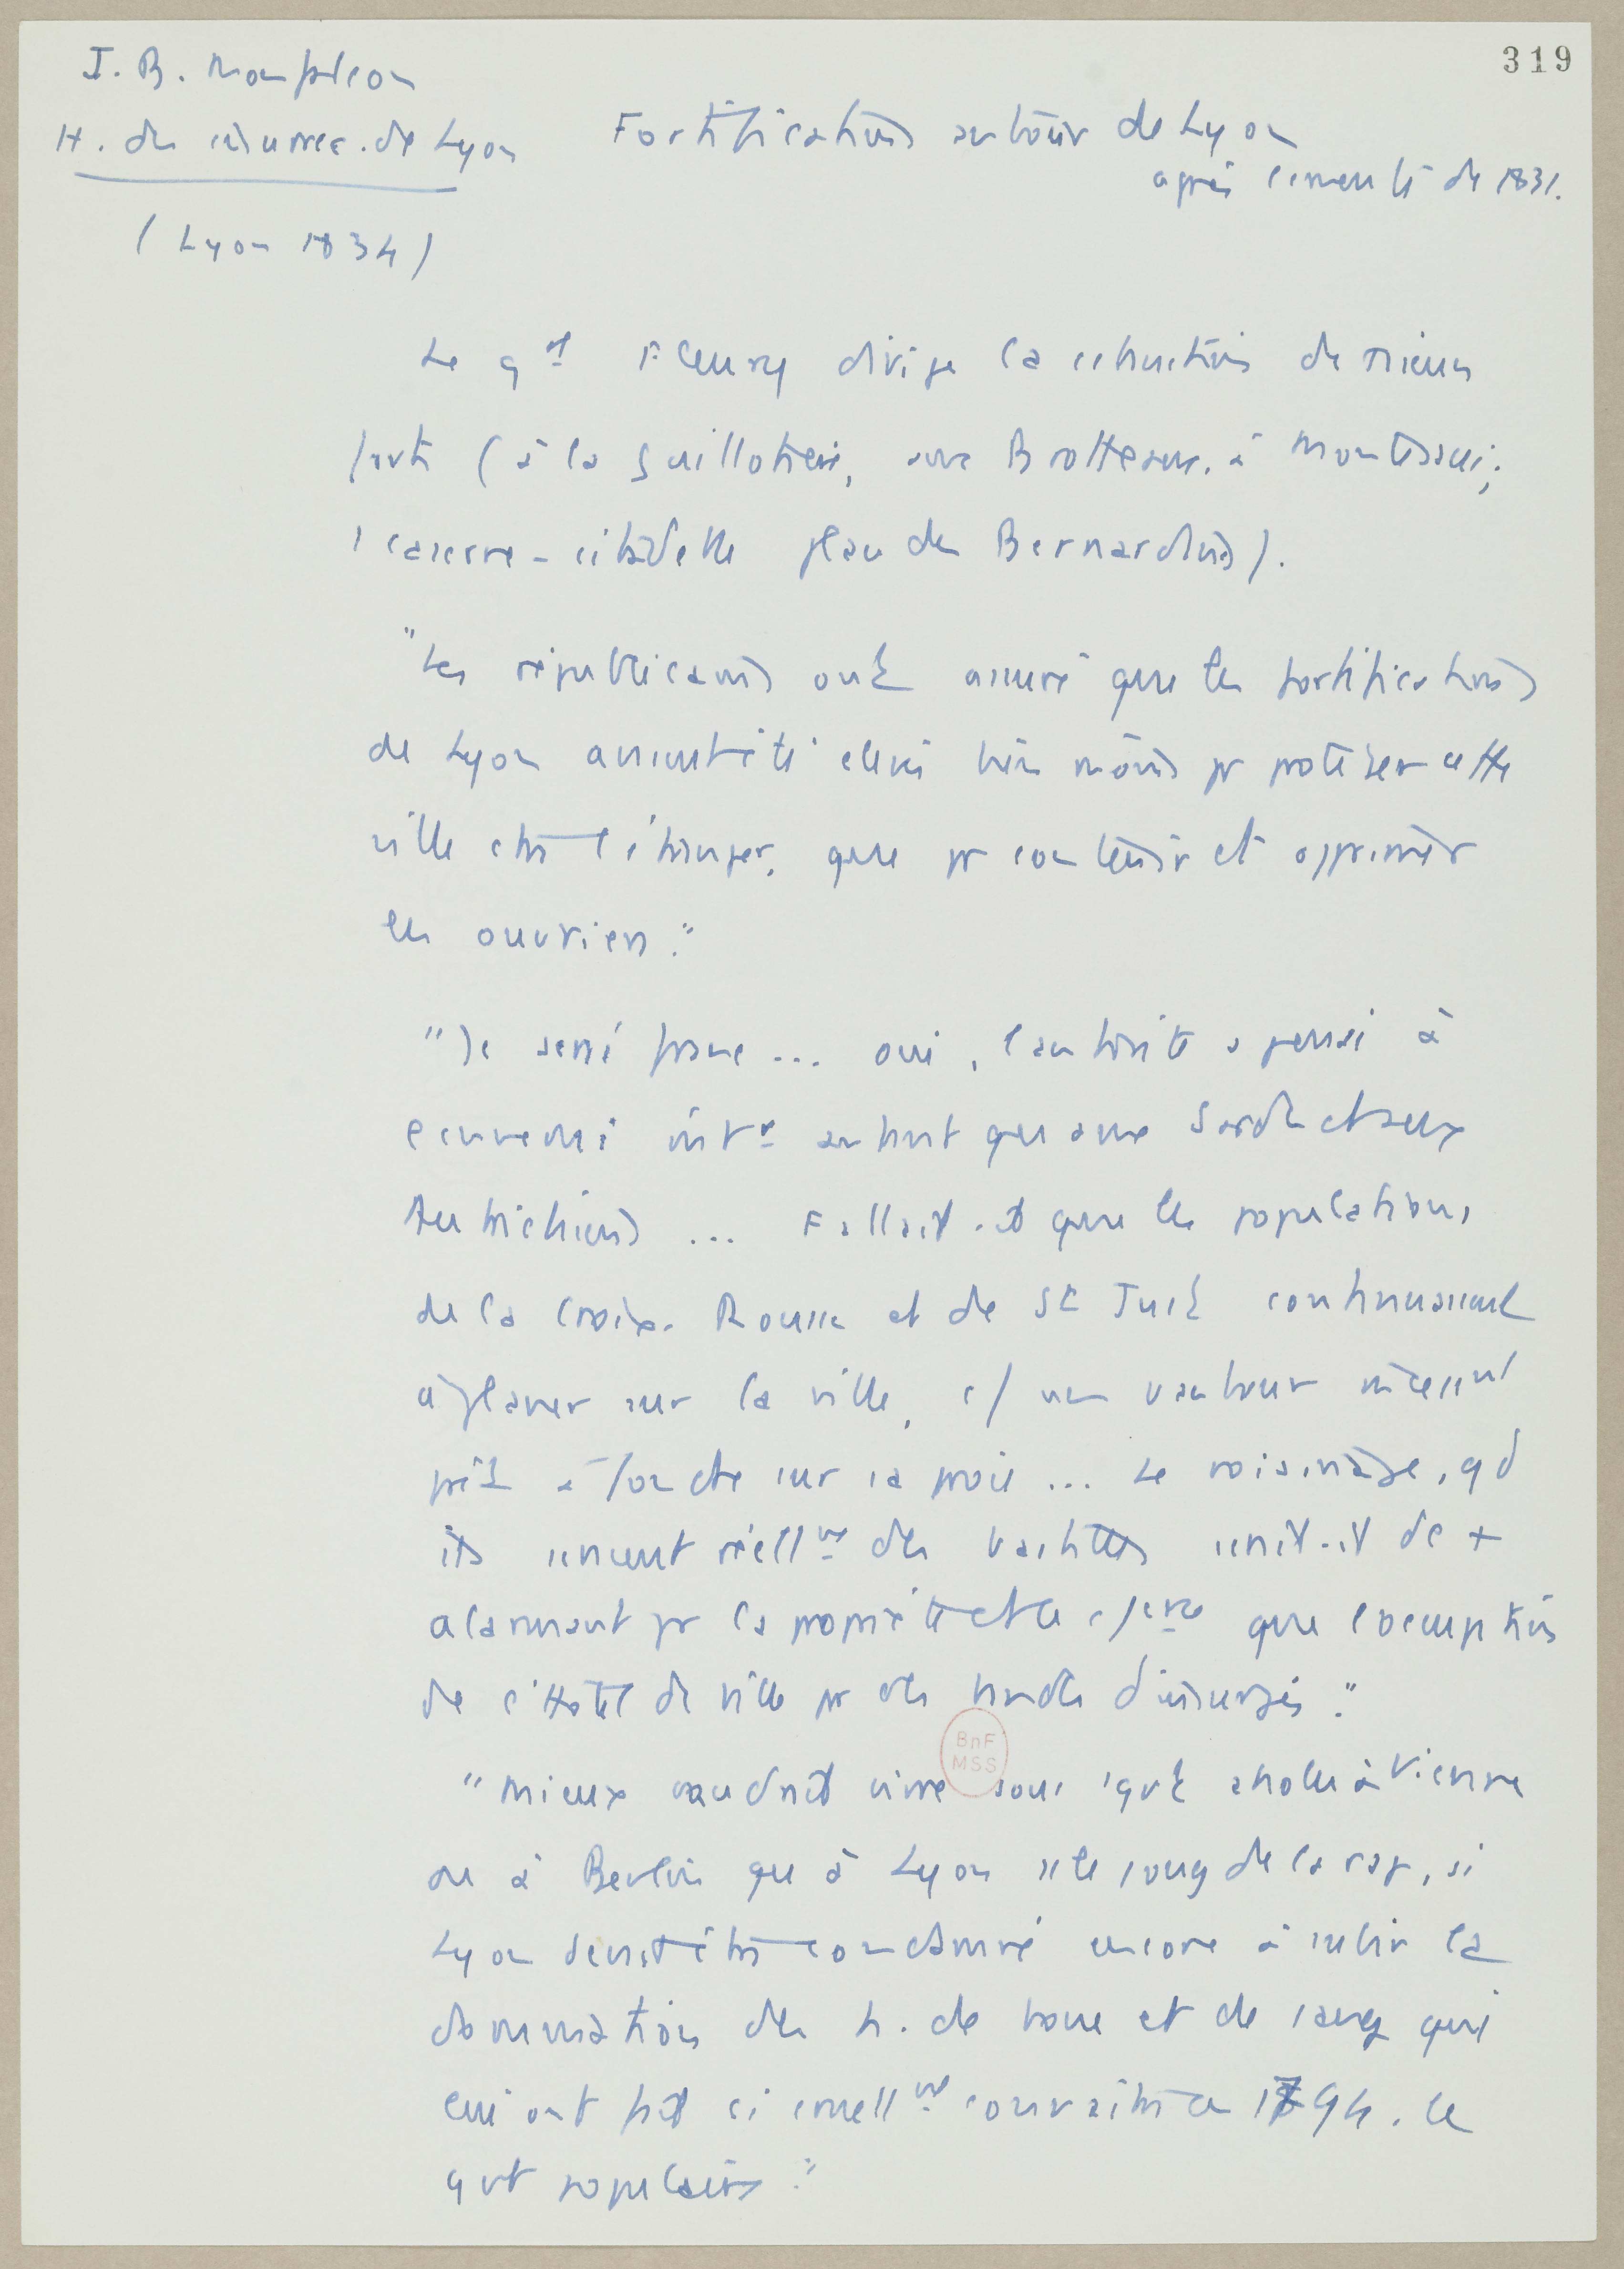 319
J. B. Monfalcon
H. des insurrec. de Lyon
(Lyon 1834)
Fortifications autour de Lyon
après l'émeute de 1831.
Le gal Fleury dirige la cstruction de plusieurs
forts (à la Guillotière, aux Brotteaux, à Montessui;
1 caserne-citadelle place des Bernardins).
"Les républicains ont assuré que les fortifications
de Lyon avaient été élevées bien moins pr protéger cette
ville ctre l'étranger, que pr contenir et opprimer
les ouvriers."
"Je serai franc... oui, l'autorité a pensé à
l'ennemi intr autant qu'aux Sardes et aux
Autrichiens ... Fallait-il que les populations
de la Croix-Rousse et de St Just continuassent
à planer sur la ville, c/ un vautour incessant
prêt à fondre sur sa proie ... Le voisinage, qd
ils seraient réellmt des bastilles serait-il de +
alarmant pr la propriété et le c/erce que l'occupation
de l'Hôtel de ville pr des bandes d'insurgés."
BnF
MSS
"Mieux vaudrait vivre sous 1 gvt absolu à Vienne
ou à Berlin qu'à Lyon ss le joug de la rép, si
Lyon devait être condamné encore à subir la
domination des h. de boue et de sang qui
lui ont fait si cruellmt connaître en 1794. le
gvt populaire."